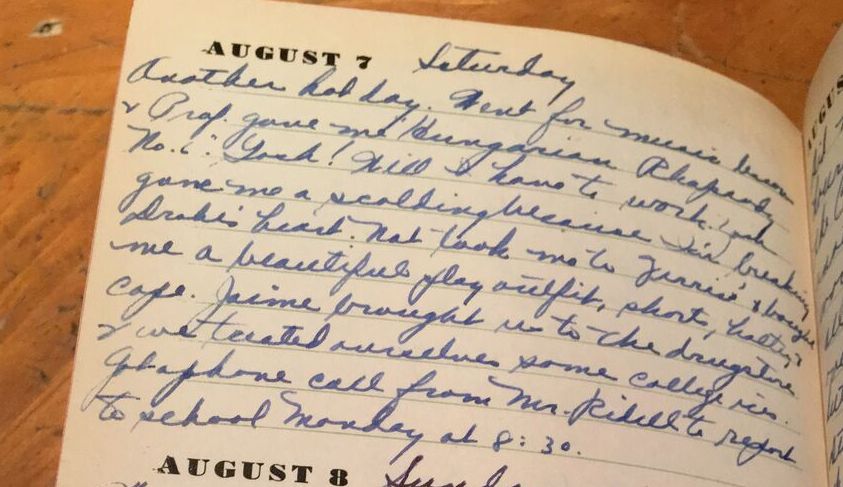 AUGUST 7 Saturday
Another hot day. Went for music lesson
& Prof. gave me Hungarian Rhapsody
No. 6. Gosh! Will I have to work.
gave me a scolding because I'm breaking
Drake's heart. Nat took me to & bought
me a beautiful play outfit, short, halter &
cape. Jaime brought us to the drugstore
& we treated ourselves some college ices.
Got a phone call from Mr. to report
to school Monday at 8:30.
AUGUST 8
AUGUS